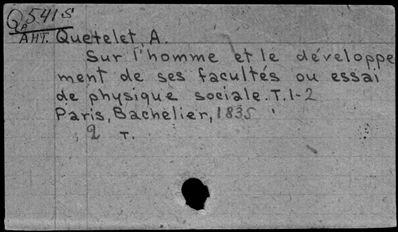 Q 541S
АНТ. Quetelet, A.
Sur l'homme et le développe
ment de ses facultés ou essai
de physique sociale. T. 1-2
Paris, Bachelier, 1835
2 т.